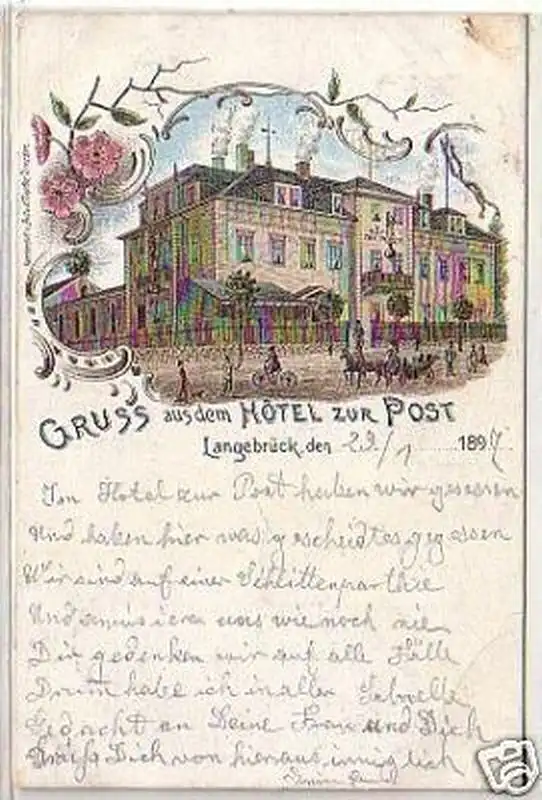 GRUSS aus dem HÔTEL ZUR POST
Langebrück, den 23/1 1897.
Im Hotel zur Post haben wir gesessen
Und haben hier was gescheidtes gegessen
Wir sind auf einer Schlittenparthie
Und amüsieren uns wie noch nie
Dir gedenken wir auf alle Fälle
Drum habe ich in aller Schnelle
Gedacht an Deine Frau und Dich
Grüße Dich von hier aus inniglich